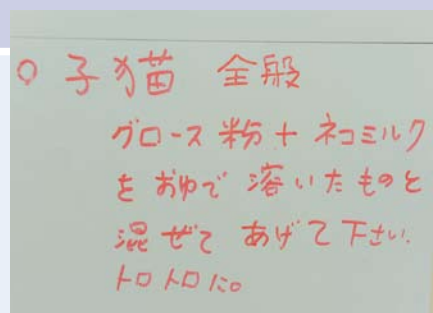 ○ 子猫 全般
グロース粉+ネコミルク
を お湯で 溶いたものと
混ぜて あげて下さい.
トロトロに。